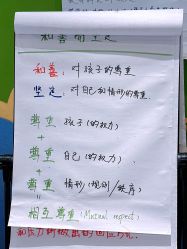 和善而坚定
和善：对孩子的尊重
坚定：对自己和情形的尊重
尊重 孩子（的权力）
+
尊重 自己（的权力）
+
尊重 情形（规则/秩序）
=相互尊重（Mutual respect）